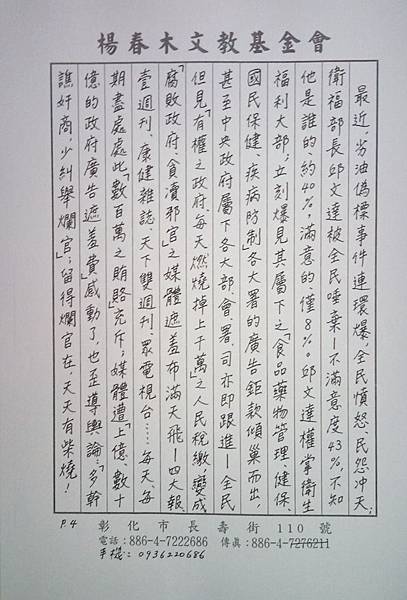 楊春木文教基金會
最近，劣油偽標事件連環爆，全民憤怒、民怨沖天；
衛福部長邱文達被全民唾棄—不滿意度43%，不知
他是誰的，約40%，滿意的，僅8%。邱文達權掌衛生
福利大部；立刻爆見其屬下之「食品藥物管理、健保、
國民保健、疾病防制」各大署的廣告鉅款傾巢而出，
甚至中央政府屬下各大部會、署、司亦即跟進—全民
但見「有權之政府每天燃燒掉上千萬」之人民稅繳變成
「腐敗政府、貪瀆邪官」之媒體遮羞布滿天飛—四大報、
壹週刊、康健雜誌、天下雙週刊、眾電視台……每天、每
期盡處處此「數百萬之賄賂充斥；媒體遭「上億、數十
億的政府廣告遮羞費」感動了，也歪導輿論：「多幹
譙奸商，少糾舉爛官」；留得爛官在，天天有柴燒！
P.4
彰化市長壽街110號
電話：886-4-7222686 傳真：886-4-7276211
手機：0936220686